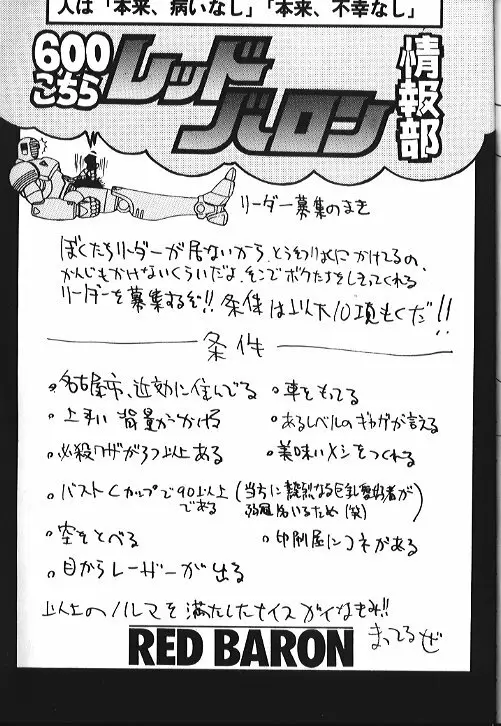 人は「本来、病いなし」「本来、不幸なし」
600
こちら
レッド
バロン
情報部
リーダー募集のまき
ぼくたちリーダーが居ないから、かけてるの、
かんじもかけないくらいだよ、そこでボクたちをしてくれる
リーダーを募集するぞ!!条件は以下10項もくだ!!
条件
・名古屋市、近効に住んでる
・車をもってる
・上手い背景がかける
・あるレベルのギャグが言える
・必殺ワザが3つ以上ある
・美味いメシをつくれる
・バストCカップで90以上
である
(当方に熱烈なる巨乳愛好者が
いるため(笑))
・空をとべる
・印刷屋にコネがある
・目からレーザーが出る
以上のノルマを満たしたナイスガイなきみ!!
まってるぜ
RED BARON